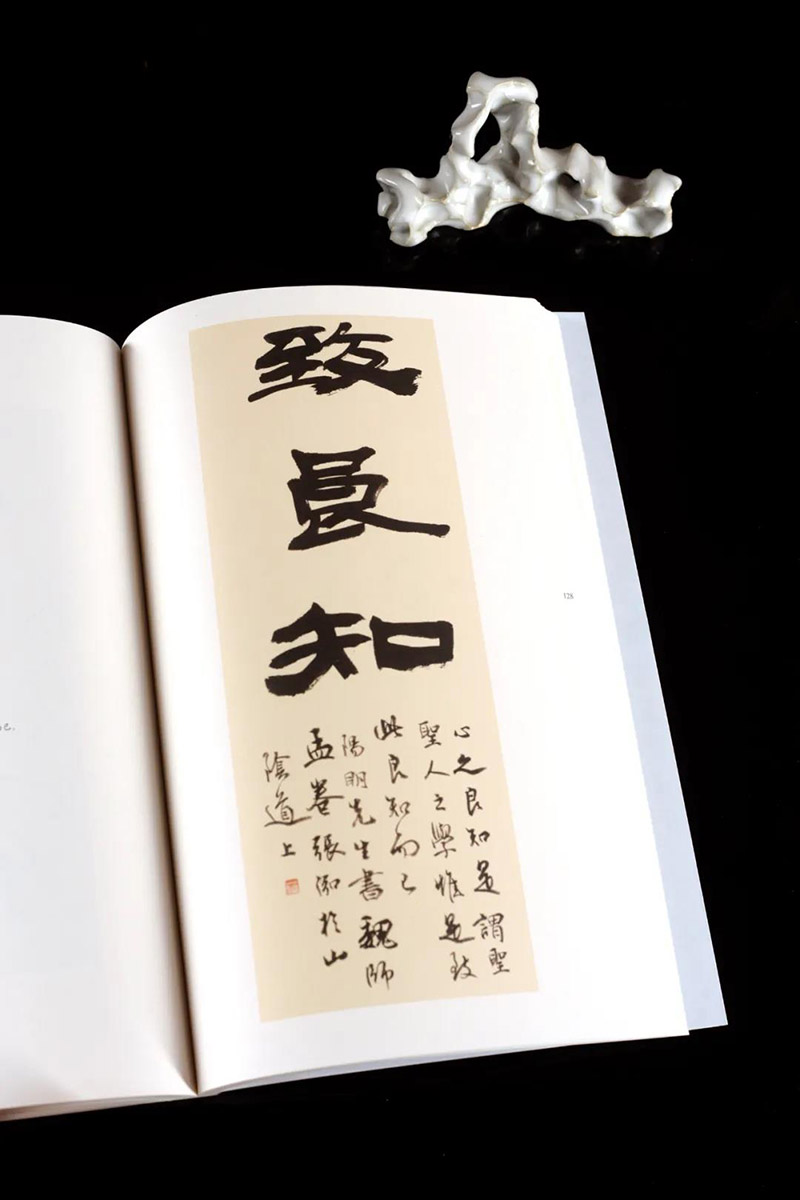 致
良
知
心之良知是謂聖
聖人之學惟是致
此良知而已
陽明先生書魏師
孟卷張於山
陰道上
128